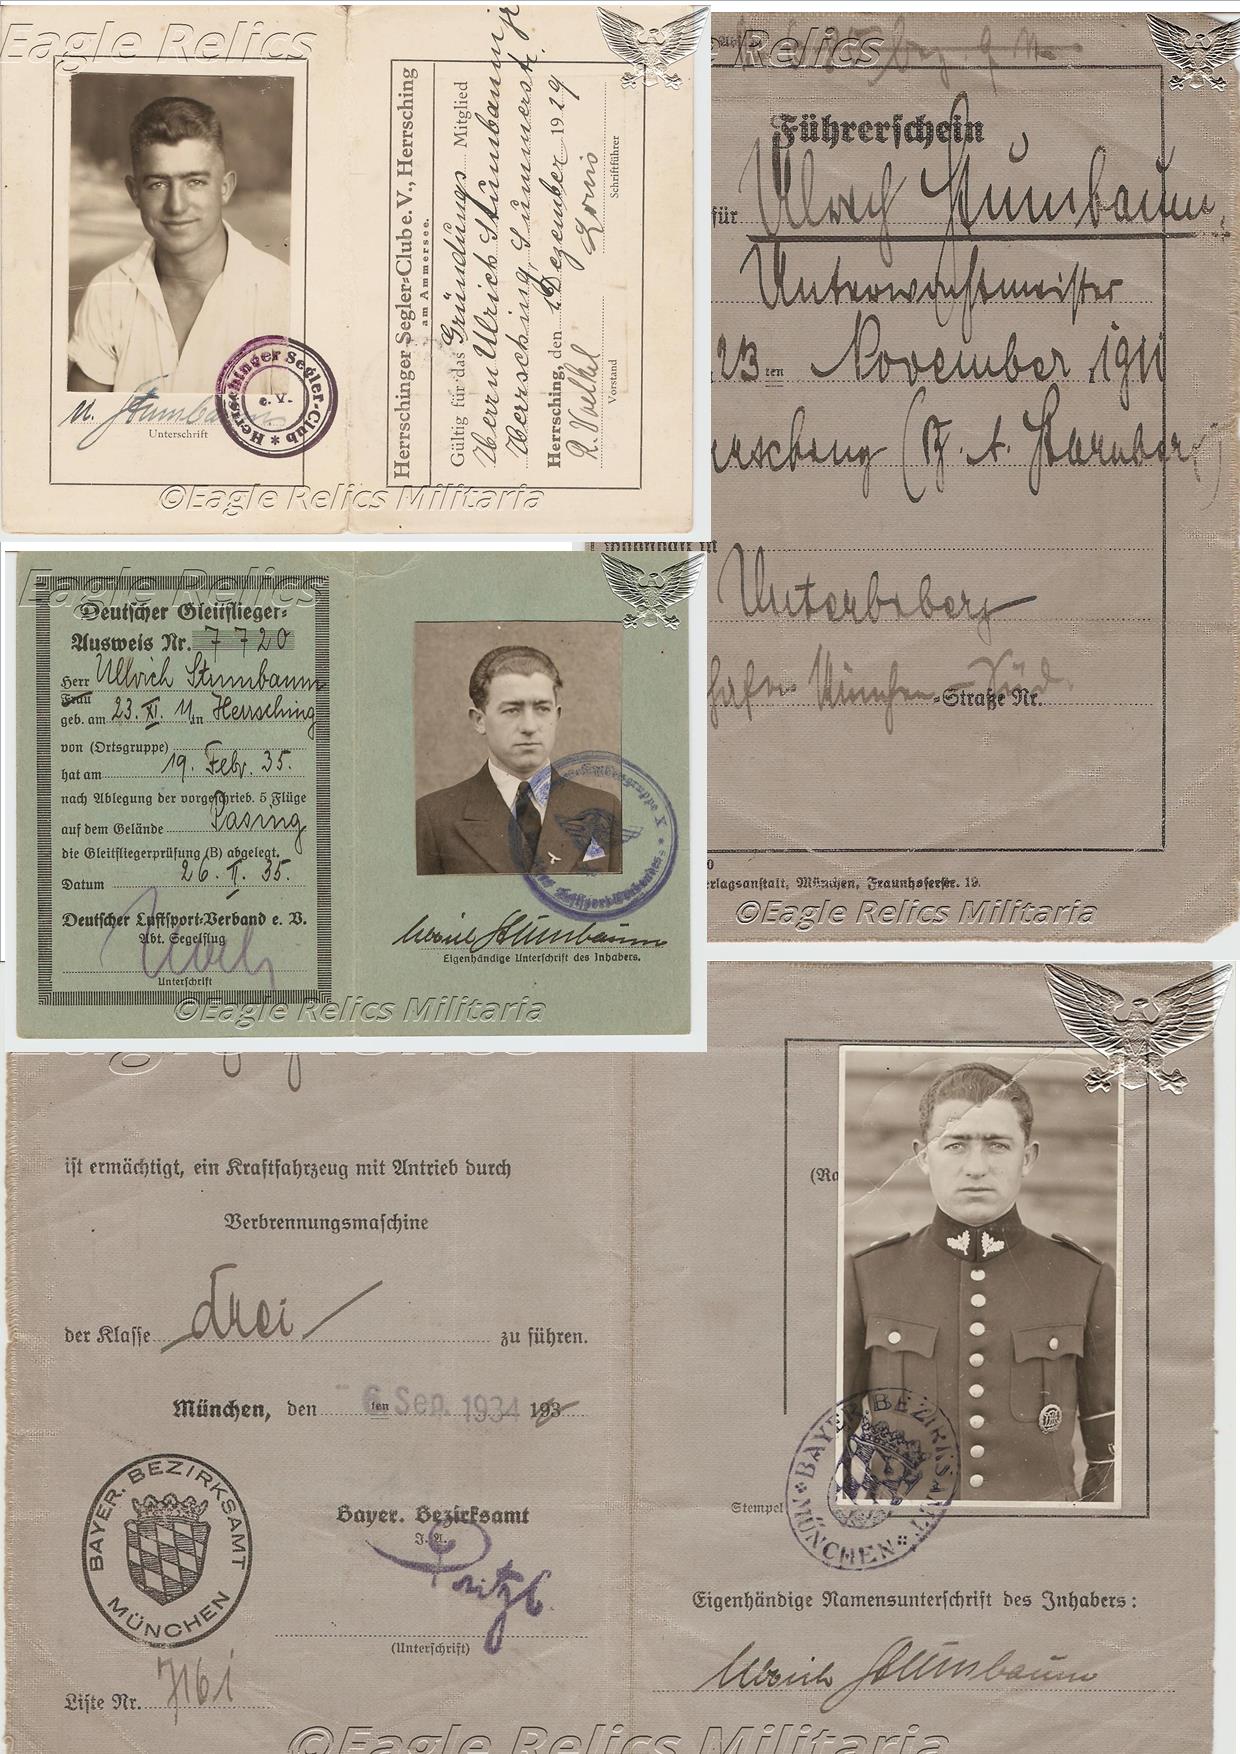 Eagle Relics
Herrschinger Segler-Club e.V., Herrsching
am Ammersee.
Gültig für das Gründungs Mitglied
Herrn Ulrich Stumbaum jr.
Herrsching, Summerstr.
Herrsching, den 6. Dezember 1929
Vorstand
Schriftführer
U. Stumbaum
Unterschrift
Herrschinger Segler-Club *
e. V.
©Eagle Relics Militaria
Relics
Führerschein
für Ulrich Stumbaum,
Unterwachtmeister
23ten November 1911
(B. A. Starnberg)
wohnhaft in
Unterbiberg
München-Süd
-Straße Nr.
erlagsanstalt, München, Fraunhoferstr. 19.
©Eagle Relics Militaria
Eagle Relics
Deutscher Gleitflieger-
Ausweis Nr. 7720
Herr Ullrich Stumbaum
Frau
geb. am 23. XI. 11 in Herrsching
von (Ortsgruppe)
hat am 19. Febr. 35.
nach Ablegung der vorgeschrieb. 5 Flüge
auf dem Gelände Pasing
die Gleitfliegerprüfung (B) abgelegt.
Datum 26. II. 35.
Deutscher Luftsport-Verband e. V.
Abt. Segelflug
Unterschrift
Ulrich Stumbaum
Eigenhändige Unterschrift des Inhabers.
©Eagle Relics Militaria
ist ermächtigt, ein Kraftfahrzeug mit Antrieb durch
Verbrennungsmaschine
der Klasse drei zu führen.
München, den 6. Sep. 1934 193
ten
Bayer. Bezirksamt
J. A.
(Unterschrift)
BAYER. BEZIRKSAMT
MÜNCHEN
Liste Nr. 7161
(Ra
Stempel
BAYER. BEZIRKSAMT
MÜNCHEN
Eigenhändige Namensunterschrift des Inhabers:
Ulrich Stumbaum
©Eagle Relics Militaria